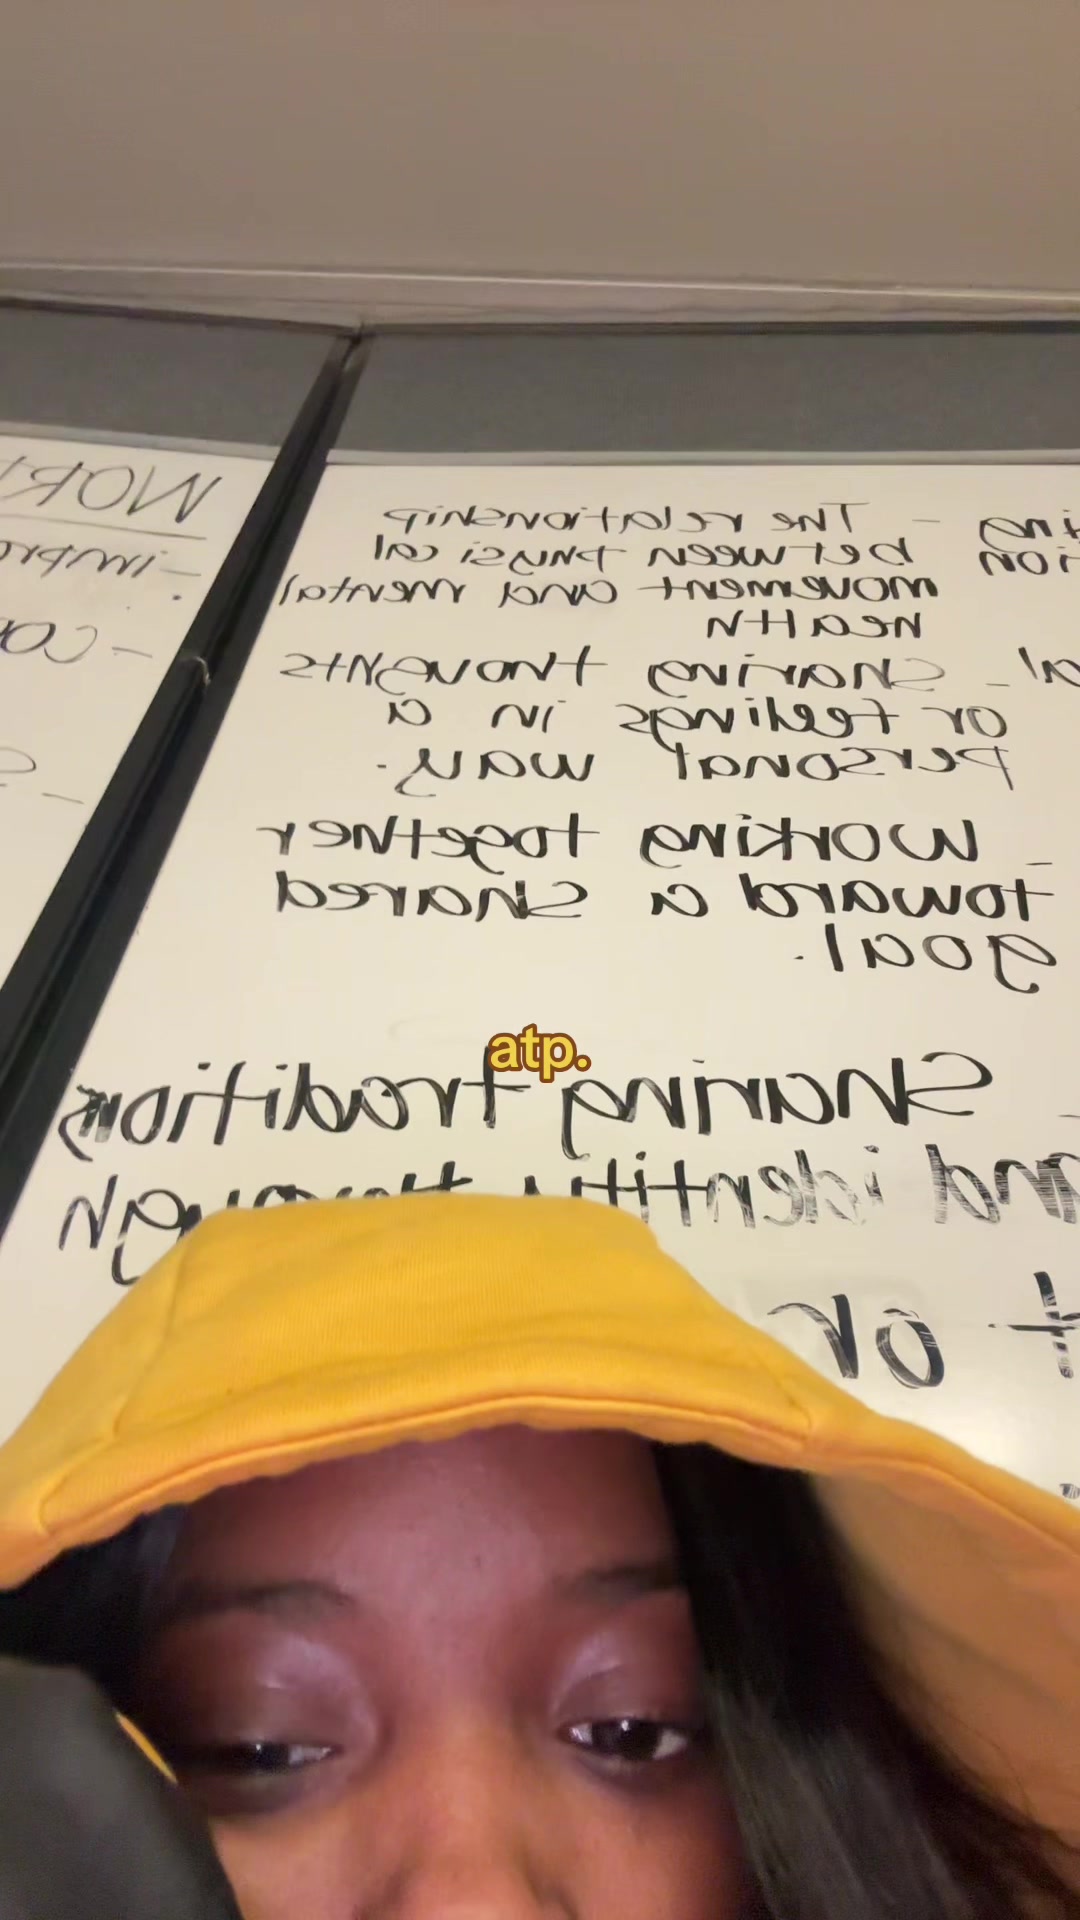 WOR
- impro
- co
- s
ing - The relationship
ion between physical
movement and mental
health
al - sharing thoughts
or feelings in a
personal way.
- working together
toward a shared
goal.
atp.
- Sharing traditions
and identity through
t or